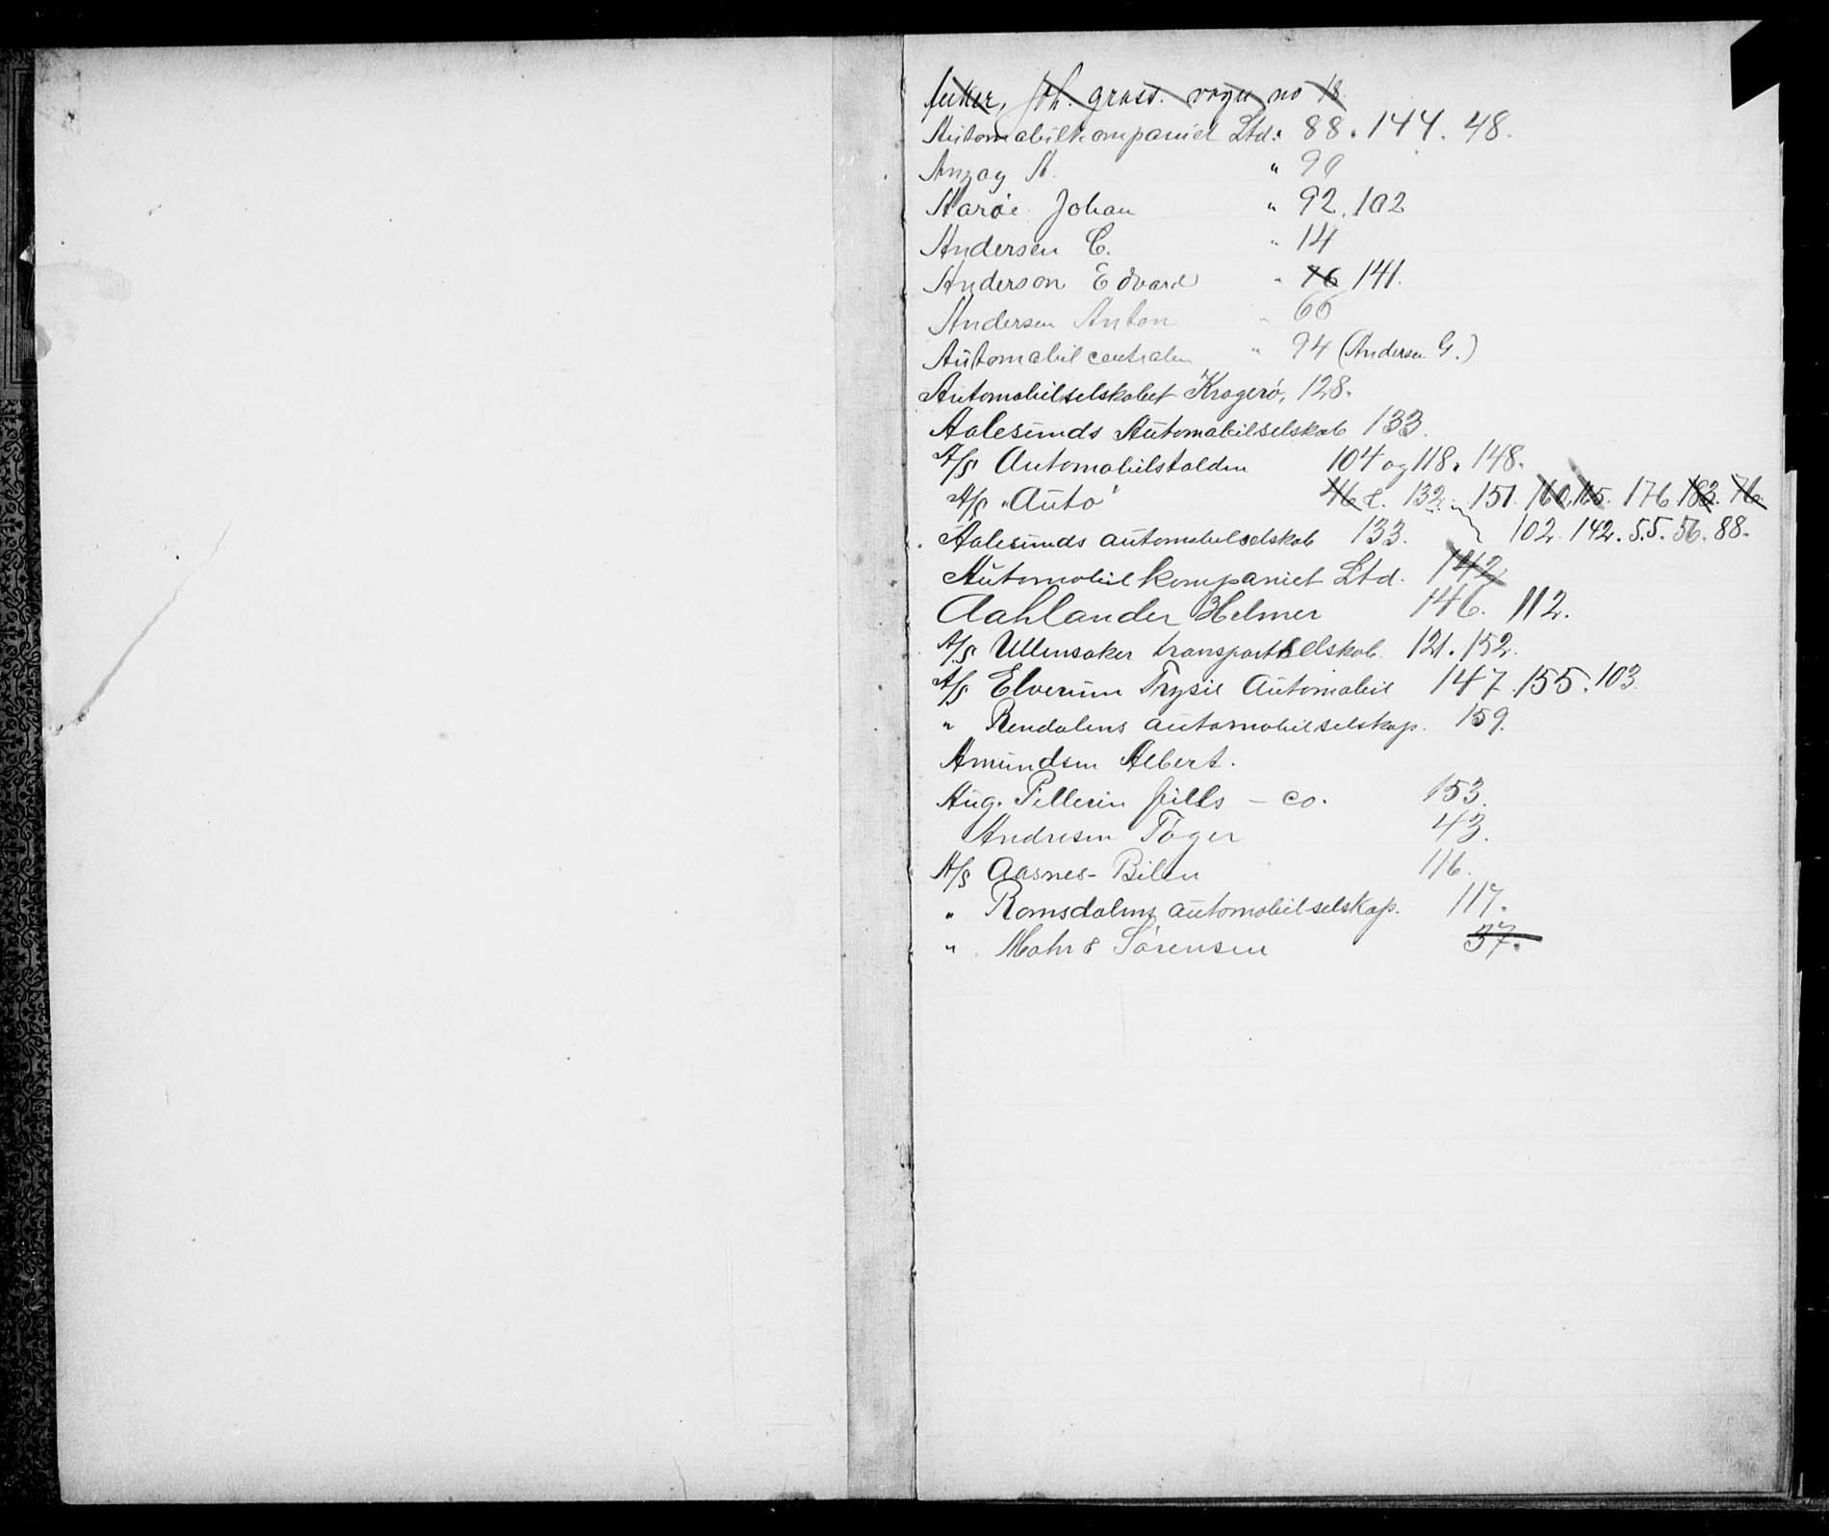 Joh. gross. vogn no 18
Automobilkompaniet Ltd. 88. 144. 48.
Anzog A. " 90
Aarøe Johan " 92. 102
Andersen C. " 14
Anderson Edvard " 76 141.
Andersen Anton " 66
Automobilcentralen " 94 (Andersen G.)
Automobilselskabet Kragerø, 128.
Aalesunds Automobilselskab 133.
A/S Automobilstalden 104 og 118. 148.
A/S "Auto" 46 132. 151. 160. 165. 176 183. 76.
Aalesunds automobilselskab 133. 102. 142. 55. 56. 88.
Automobilkompaniet Ltd. 142
Aahlander Helmer 146. 112.
A/S Ullensaker transportselskab 121. 152.
A/S Elverum Trysil Automobil 147. 155. 103.
" Rendalens automobilselskap. 159.
Amundsen Albert.
Aug. Pellerin fills - co. 153.
Andresen Tøger 43.
A/S Aasnes-Bilen 116.
" Romsdalens automobilselskap. 117.
" Mohr & Sørensen 37.